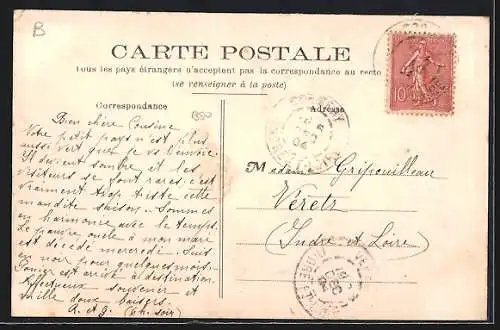 B
CARTE POSTALE
Tous les pays étrangers n'acceptent pas la correspondance au recto
(se renseigner à la poste)
Correspondance
Adresse
10
Bien chère Cousine
Votre petit pays n'est plus
aussi vert que je vs l'envoie
Il devient sombre et les
visiteurs se font rares. c'est
vraiment trop triste cette
maudite saison. Sommes
en harmonie avec le temps.
Le pauvre oncle à mon mari
est décédé mercredi. Suis
en noir pour quelques mois.
Panier est arrivé à destination.
Affectueux souvenir et
mille doux baisers.
A. et G. (Ch. soir)
Madame Gripouilleau
Veretz
(Indre et Loire)